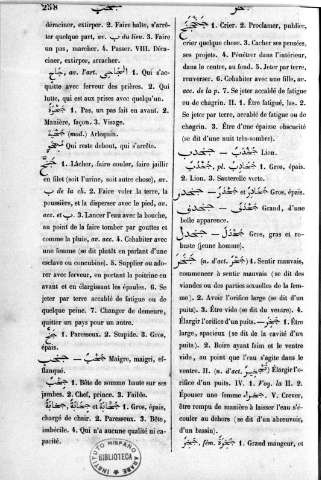 258
déraciner, extirper. 2. Faire halte, s'arrê-
ter quelque part, av. ب du lieu. 3. Faire
un pas, marcher. 4. Passer. VIII. Déra-
ciner, extirper, arracher.
1. Qui s'ac-
quitte avec ferveur des prières. 2. Qui
lutte, qui est aux prises avec quelqu'un.
1. Pas, un pas fait en avant. 2.
Manière, façon. 3. Visage.
(mod.) Arlequin.
Qui reste debout, qui s'arrête.
1. Lâcher, faire couler, faire jaillir
en filet (soit l'urine, soit autre chose), av.
ب de la ch. 2. Faire voler la terre, la
poussière, et la disperser avec le pied, av.
acc. et ب. 3. Lancer l'eau avec la bouche,
au point de la faire tomber par gouttes et
comme la pluie, av. acc. 4. Cohabiter avec
une femme (se dit plutôt en parlant d'une
esclave ou concubine). 5. Supplier ou ado-
rer avec ferveur, en portant la poitrine en
avant et en élargissant les épaules. 6. Se
jeter par terre accablé de fatigue ou de
quelque peine. 7. Changer de demeure,
quitter un pays pour un autre.
1. Paresseux. 2. Stupide. 3. Gros,
épais.
Maigre, maigri, ef-
flanqué.
1. Bête de somme haute sur ses
jambes. 2. Chef, prince. 3. Faible.
1. Gros, épais,
chargé de chair. 2. Paresseux. 3. Bête,
imbécile. 4. Qui n'a aucune qualité ni ca-
pacité.
1. Crier. 2. Proclamer, publier,
crier quelque chose. 3. Cacher ses pensées,
ses projets. 4. Pénétrer dans l'intérieur,
dans le centre, au fond. 5. Jeter par terre,
renverser. 6. Cohabiter avec une fille, av.
acc. de la p. 7. Se jeter accablé de fatigue
ou de chagrin. II. 1. Être fatigué, las. 2.
Se jeter par terre, accablé de fatigue ou de
chagrin. 3. Être d'une épaisse obscurité
(se dit d'une nuit très-sombre).
Lion.
pl. 1. Gros, épais.
2. Lion. 3. Sauterelle verte.
Gros, épais.
Grand, d'une
belle apparence.
Gros, gras et ro-
buste (jeune homme).
(n. d'act.) 1. Sentir mauvais,
commencer à sentir mauvais (se dit des
viandes ou des parties sexuelles de la fem-
me). 2. Avoir l'orifice large (se dit d'un
puits). 3. Être vide (se dit du ventre). 4.
Élargir l'orifice d'un puits. 1. Être
large, spacieux (se dit de la cavité d'un
puits). 2. Boire ayant faim et le ventre
vide, au point que l'eau s'agite dans le
ventre. II. (n. d'act.) Élargir l'o-
rifice d'un puits. IV. 1. Voy. la II. 2.
Épouser une femme. V. Crever,
être rompu de manière à laisser l'eau s'é-
couler au dehors (se dit d'un abreuvoir,
d'un bassin).
fém. 1. Grand mangeur, et
INSTITUTO HISPANO
BIBLIOTECA